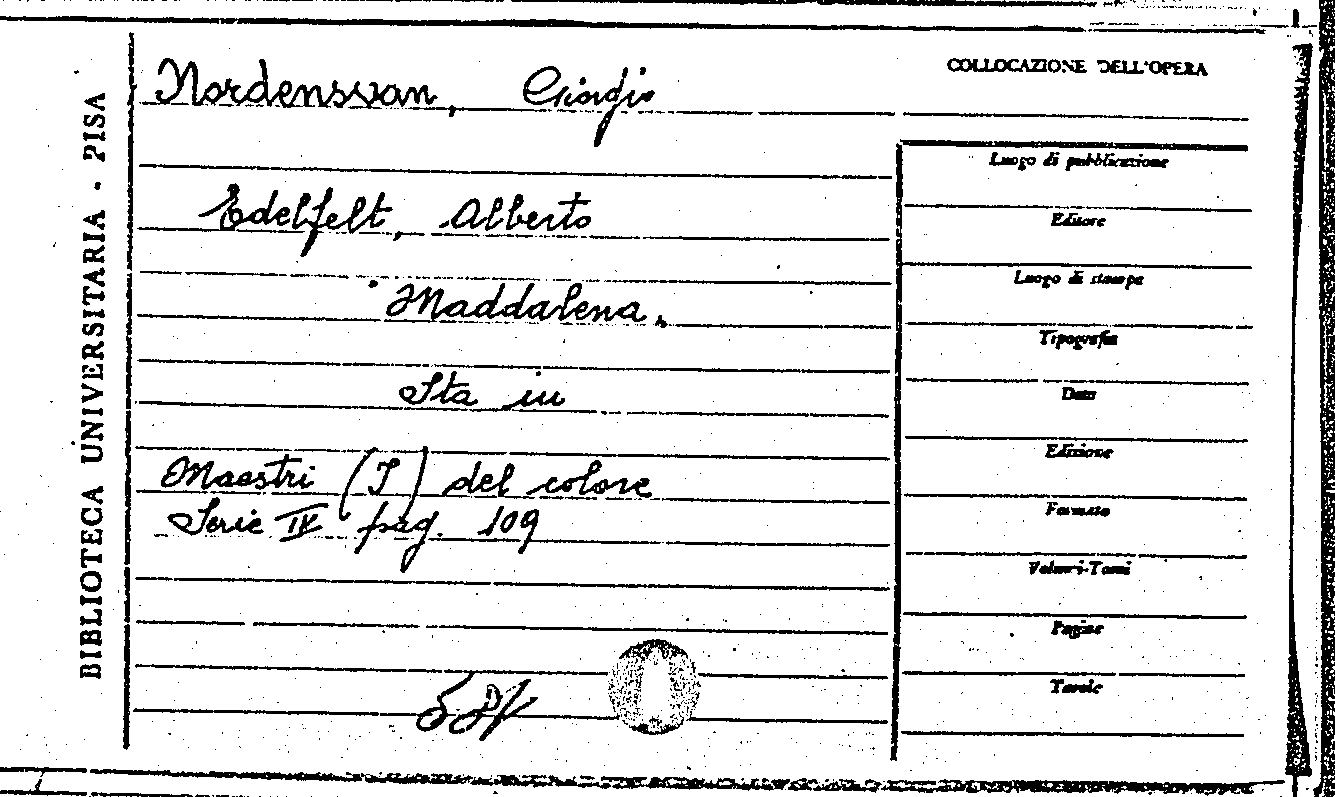 BIBLIOTECA UNIVERSITARIA - PISA
Nordensvan, Giorgio
Edelfelt, Alberto
Maddalena.
Sta in
Maestri (I) del colore
Serie IV pag. 109
COLLOCAZIONE DELL'OPERA
Luogo di pubblicazione
Editore
Luogo di stampa
Tipografia
Data
Edizione
Formato
Volumi-Tomi
Pagine
Tavole